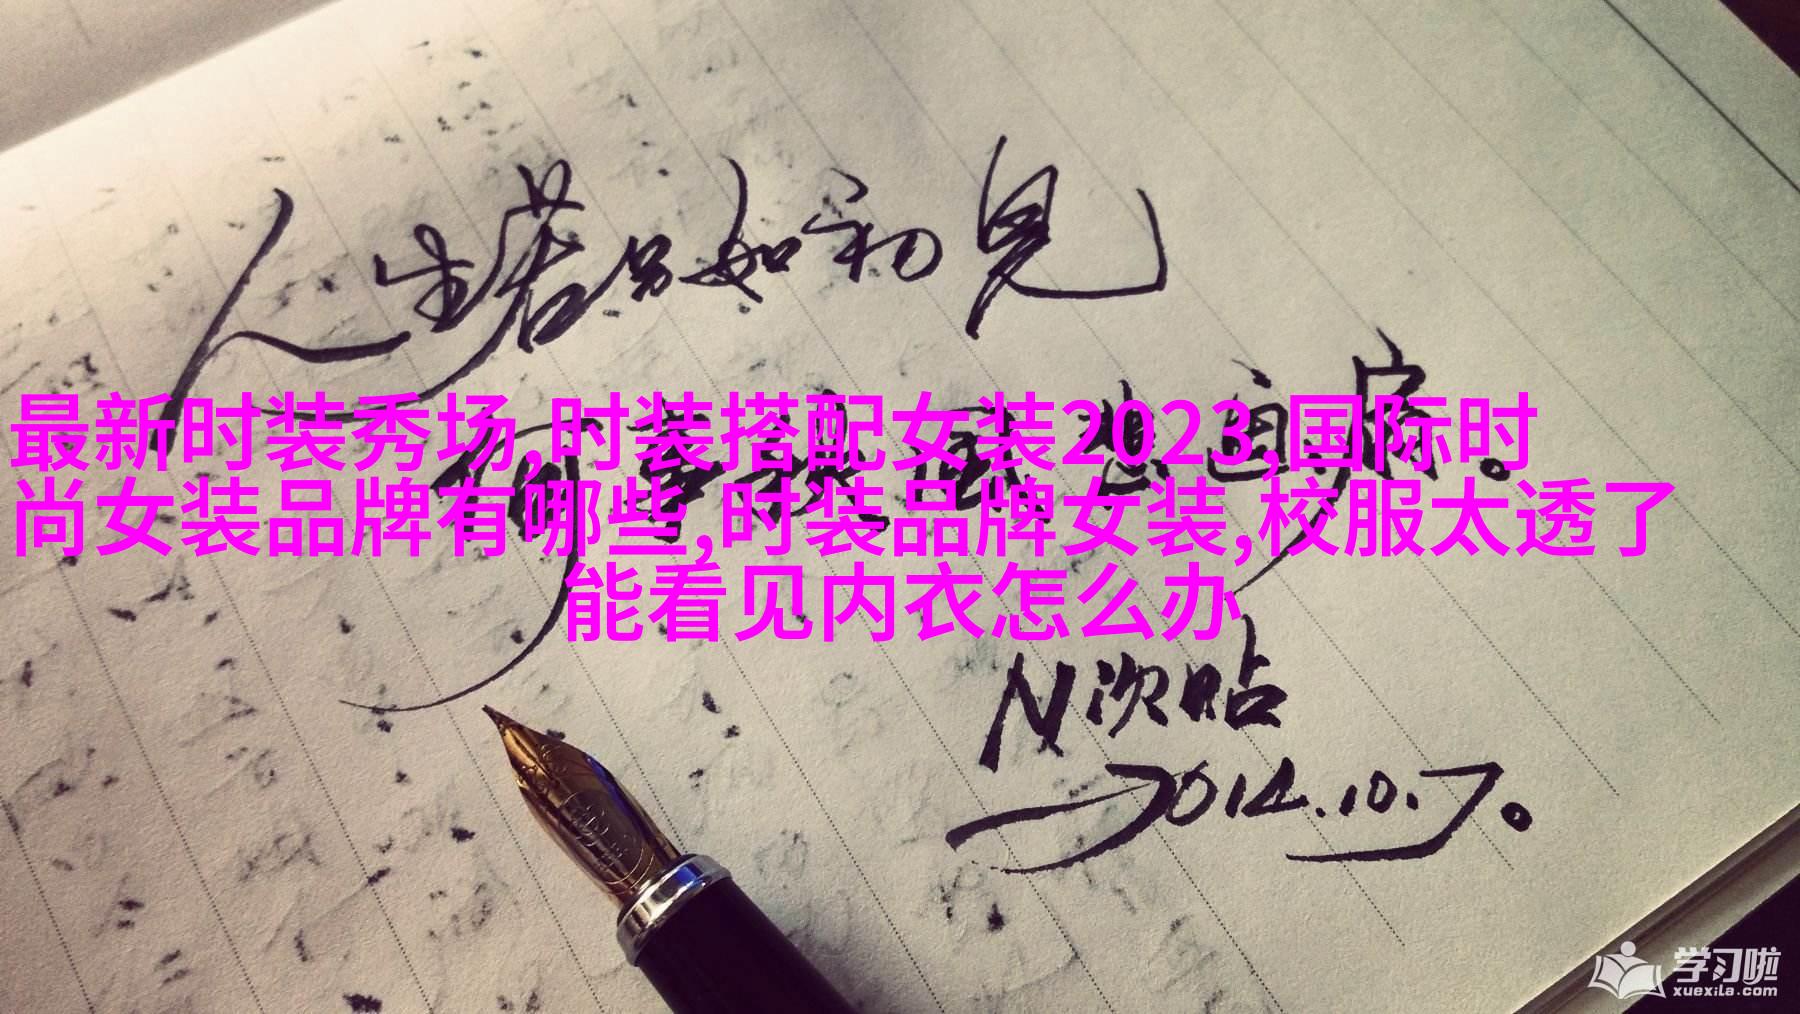 人生若只如初见
最新时装秀场,时装搭配女装2023,国际时
尚女装品牌有哪些,时装品牌女装,校服太透了
能看见内衣怎么办
N次贴
2014.10.7。
学习啦
xuexila.com